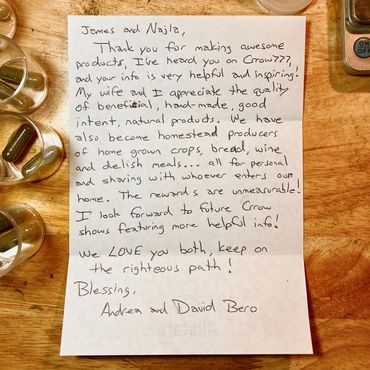 James and Najla,
Thank you for making awesome
products, I've heard you on Crrow777,
and your info is very helpful and inspiring!
My wife and I appreciate the quality
of beneficial, hand-made, good
intent, natural products. We have
also become homestead producers
of home grown crops, bread, wine
and delish meals... all for personal
and sharing with whoever enters our
home. The rewards are unmeasurable!
I look forward to future Crrow
shows featuring more helpful info!
We LOVE you both, keep on
the righteous path!
Blessing,
Andrea and David Bero
Allstate
ON
OFF